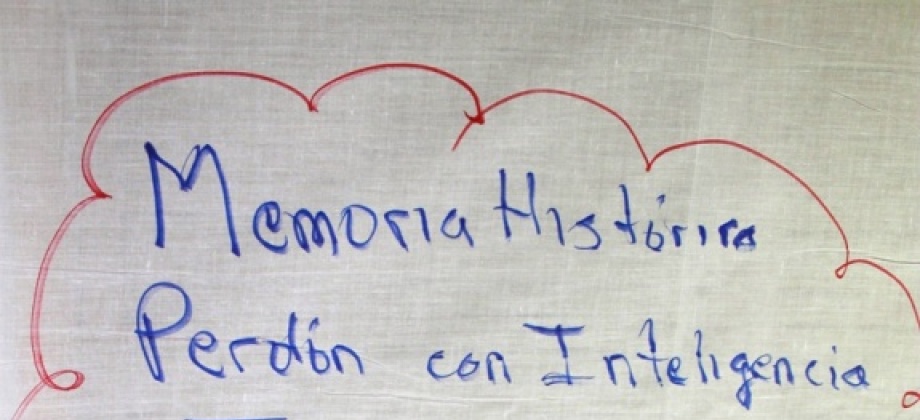 Memoria Histórica
Perdón con Inteligencia